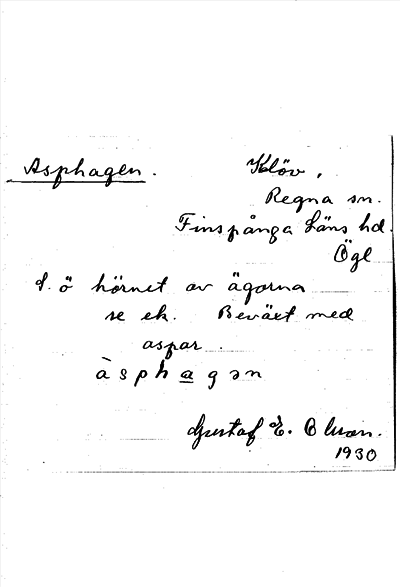 Asphagen. Klöv,
Regna sn.
Finspånga Läns hd.
Ögl
I ö hörnet av ägorna
se ek. Beväxt med
aspar.
àsphagən
Gustaf E. Olsson.
1930